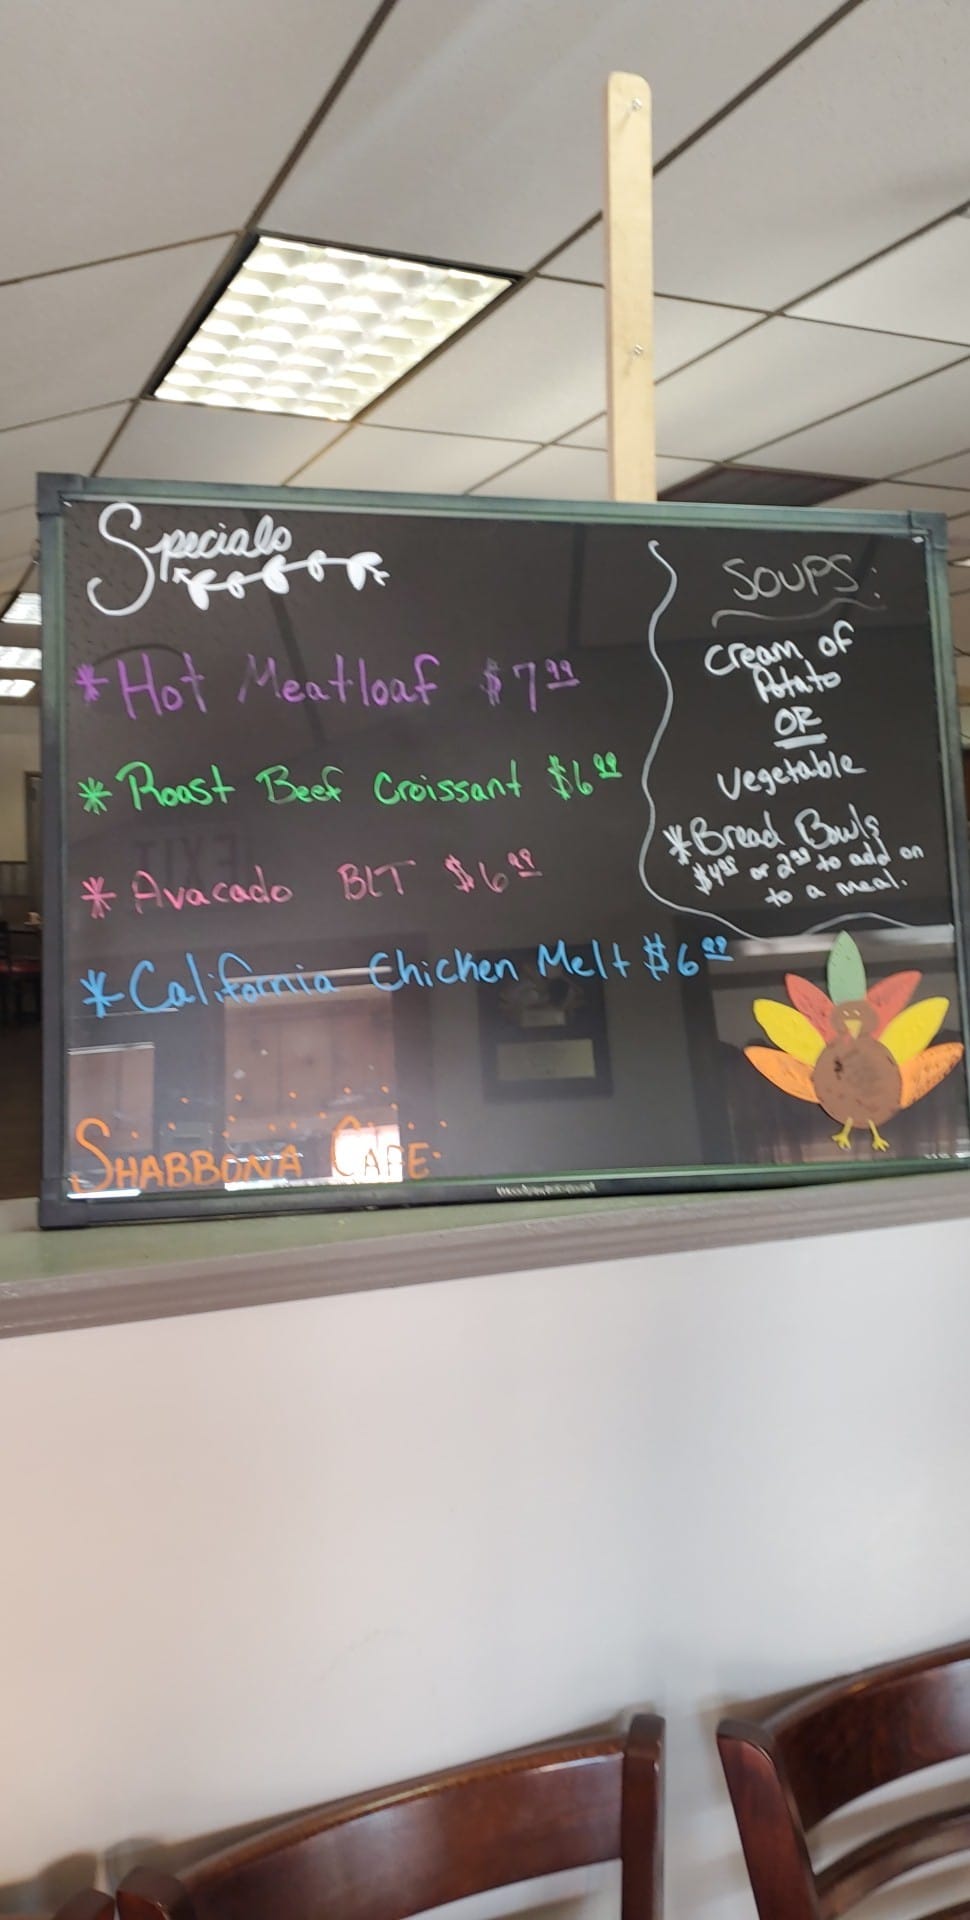 Specials
* Hot Meatloaf $7.99
* Roast Beef Croissant $6.99
* Avacado BLT $6.99
* California Chicken Melt $6.99
SHABBONA CAFE
SOUPS:
Cream of
Potato
OR
Vegetable
* Bread Bowls
$4.99 or 2.99 to add on
to a meal.
EXIT